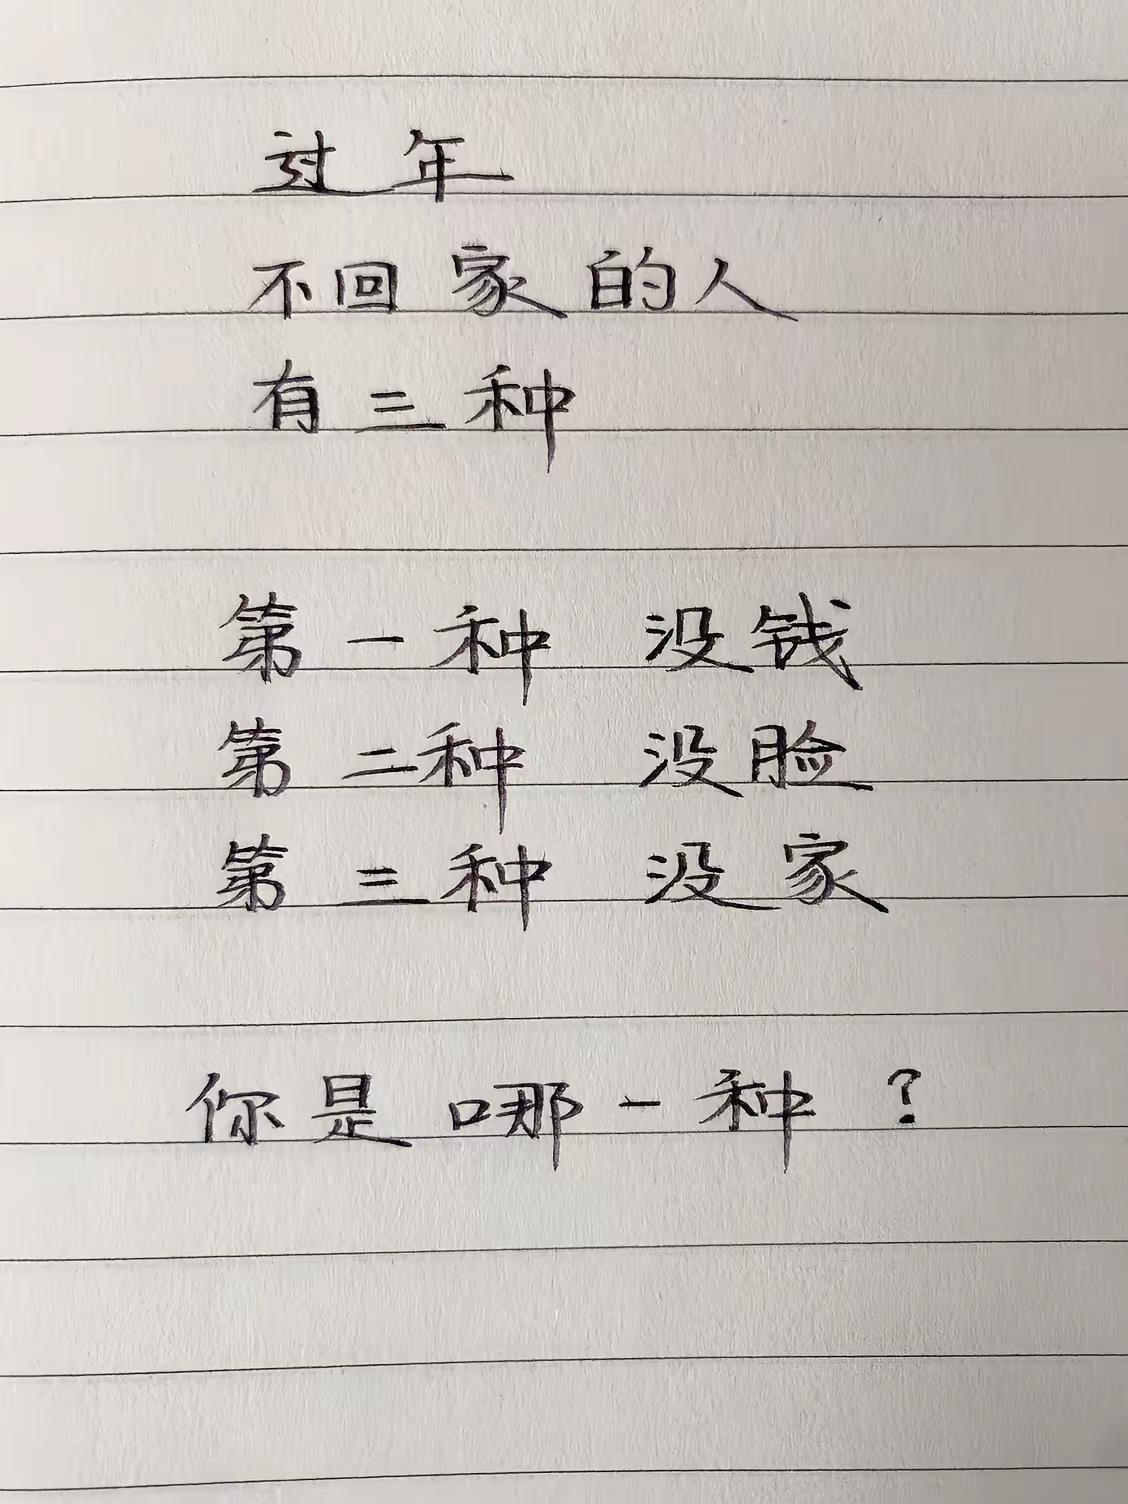 过年
不回家的人
有三种
第一种 没钱
第二种 没脸
第三种 没家
你是哪一种?